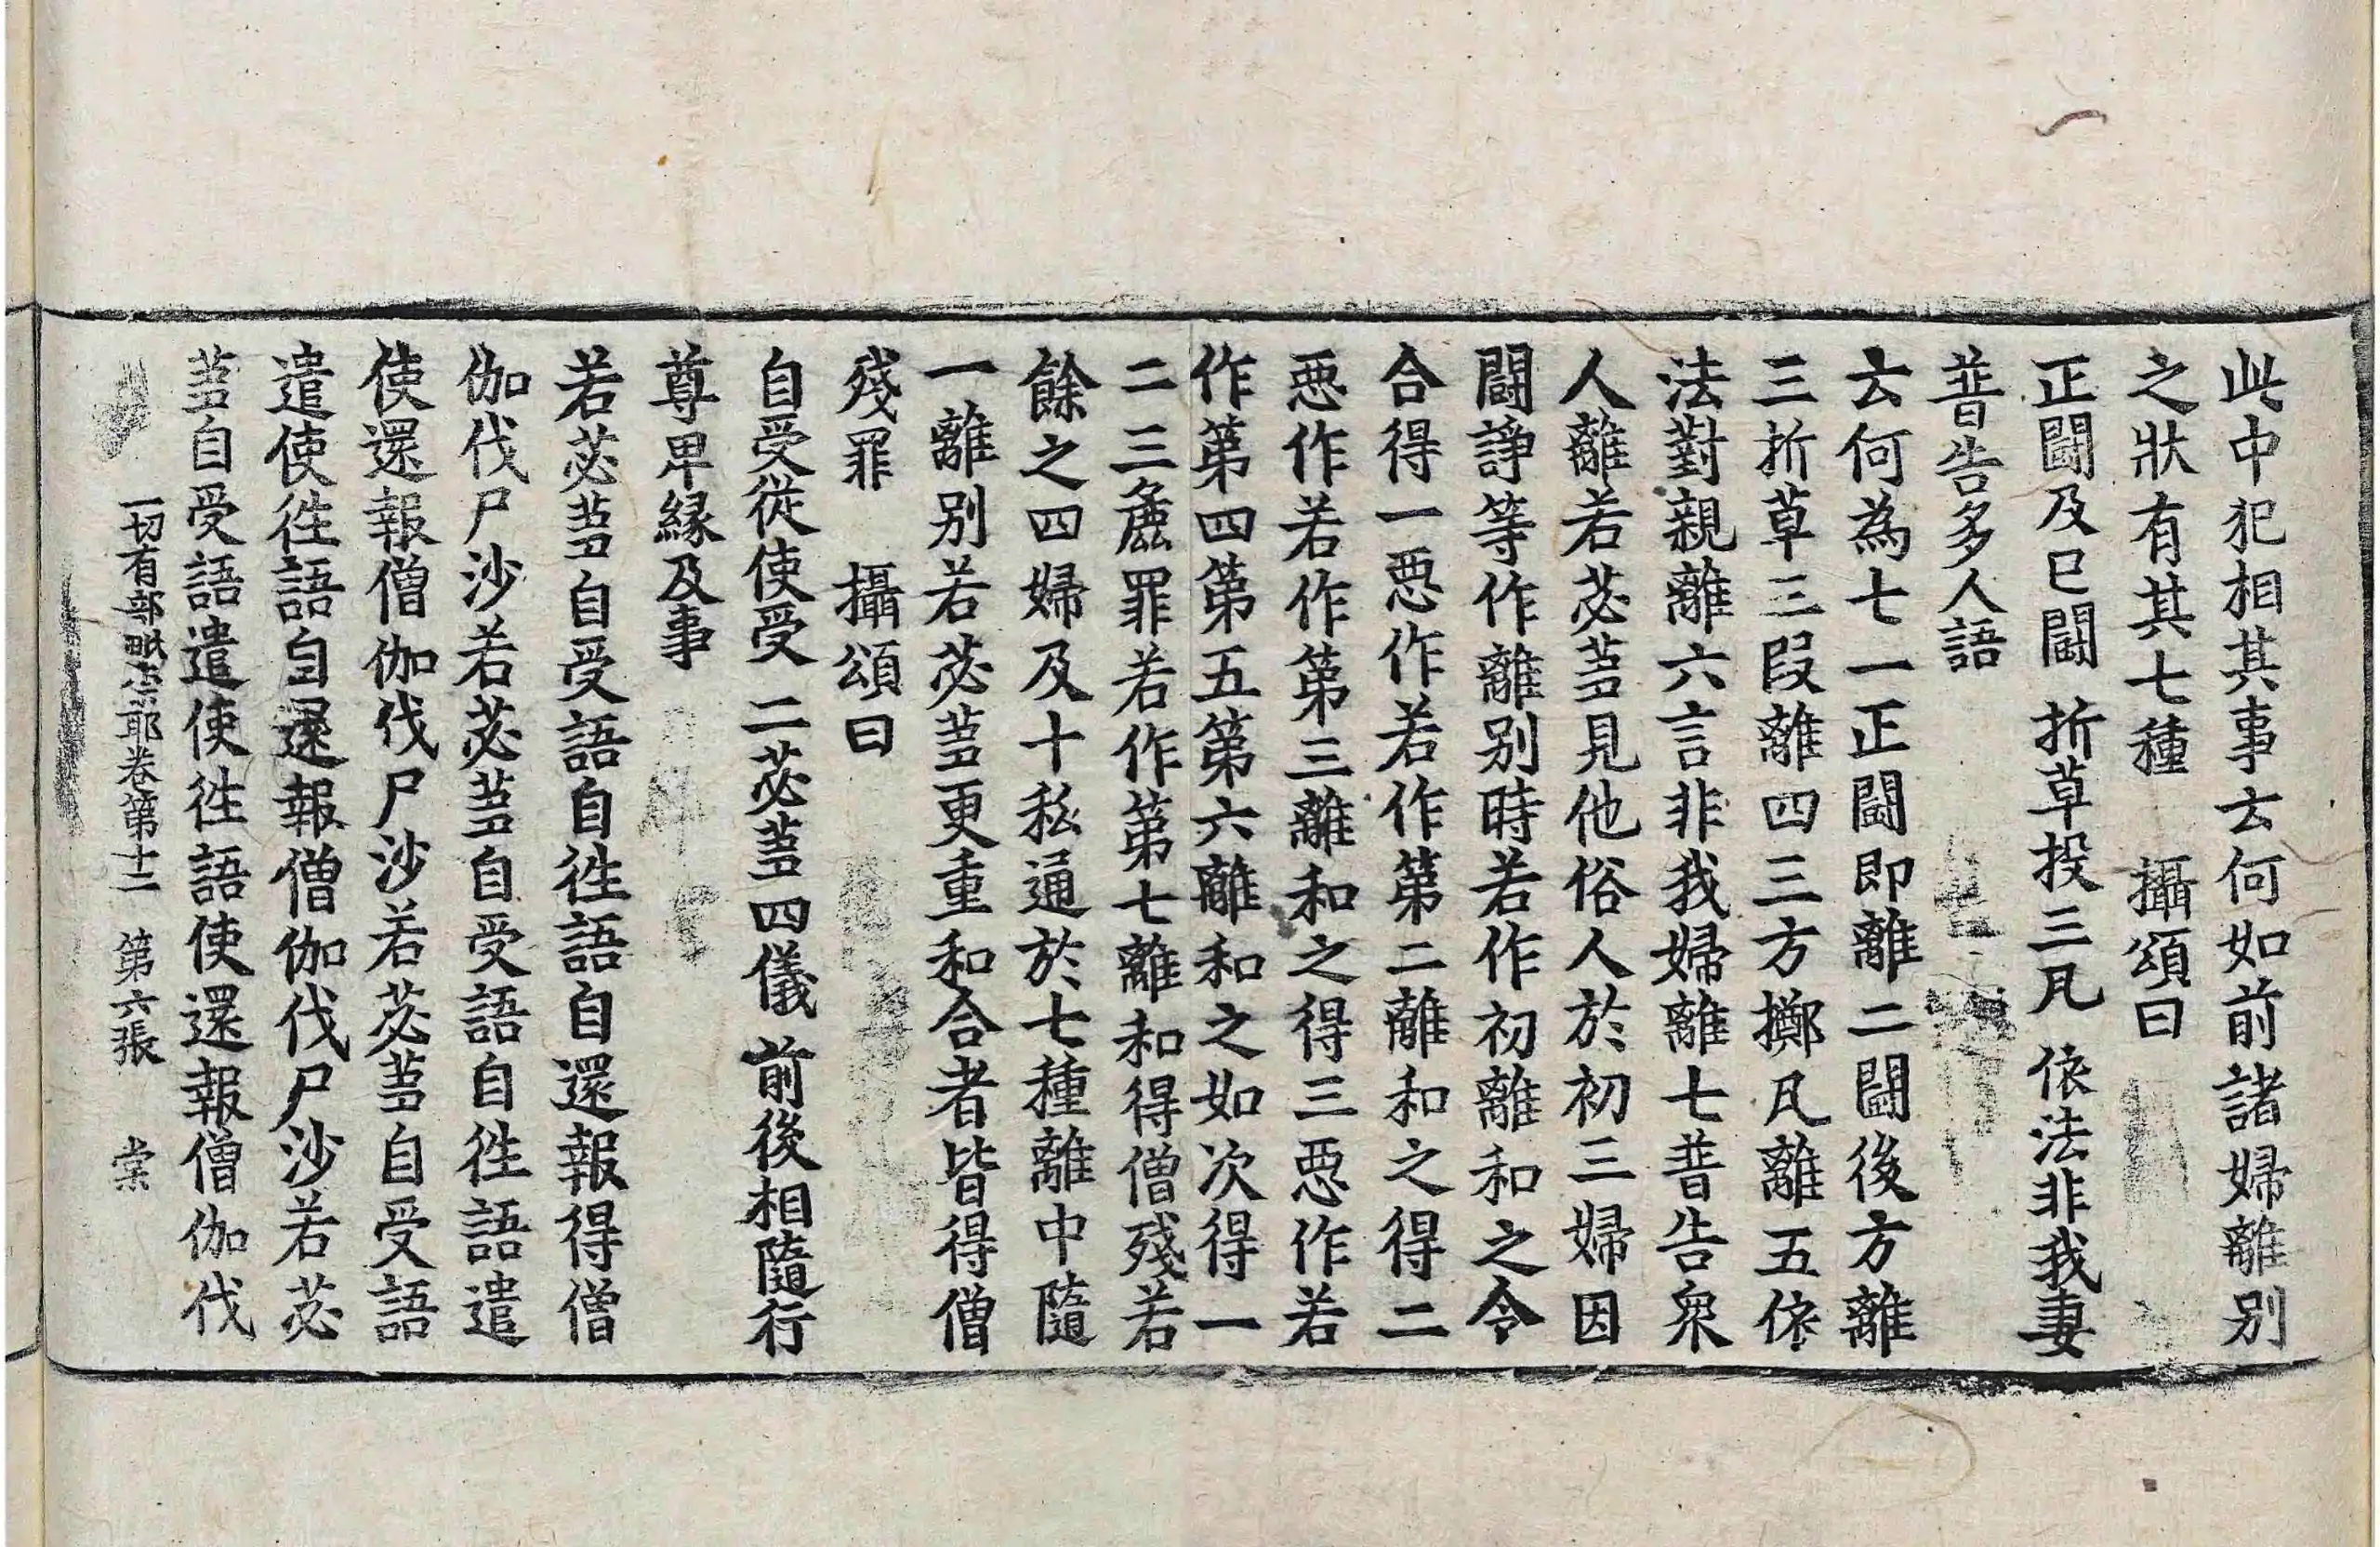 此中犯相其事云何如前諸婦離別
之狀有其七種　攝頌曰
正鬪及已鬪　折草投三凡　依法非我妻
普告多人語
云何為七一正鬪即離二鬪後方離
三折草三段離四三方擲凡離五依
法對親離六言非我婦離七普告衆
人離若苾芻見他俗人於初三婦因
鬪諍等作離別時若作初離和之令
合得一惡作若作第二離和之得二
惡作若作第三離和之得三惡作若
作第四第五第六離和之如次得一
二三麁罪若作第七離和得僧殘若
餘之四婦及十私通於七種離中隨
一離別若苾芻更重和合者皆得僧
殘罪　攝頌曰
自受從使受　二苾芻四儀　前後相隨行
尊卑緣及事
若苾芻自受語自往語自還報得僧
伽伐尸沙若苾芻自受語自往語遣
使還報僧伽伐尸沙若苾芻自受語
遣使往語自還報僧伽伐尸沙若苾
芻自受語遣使往語使還報僧伽伐
一切有部毗奈耶卷第十二　第六張　棠